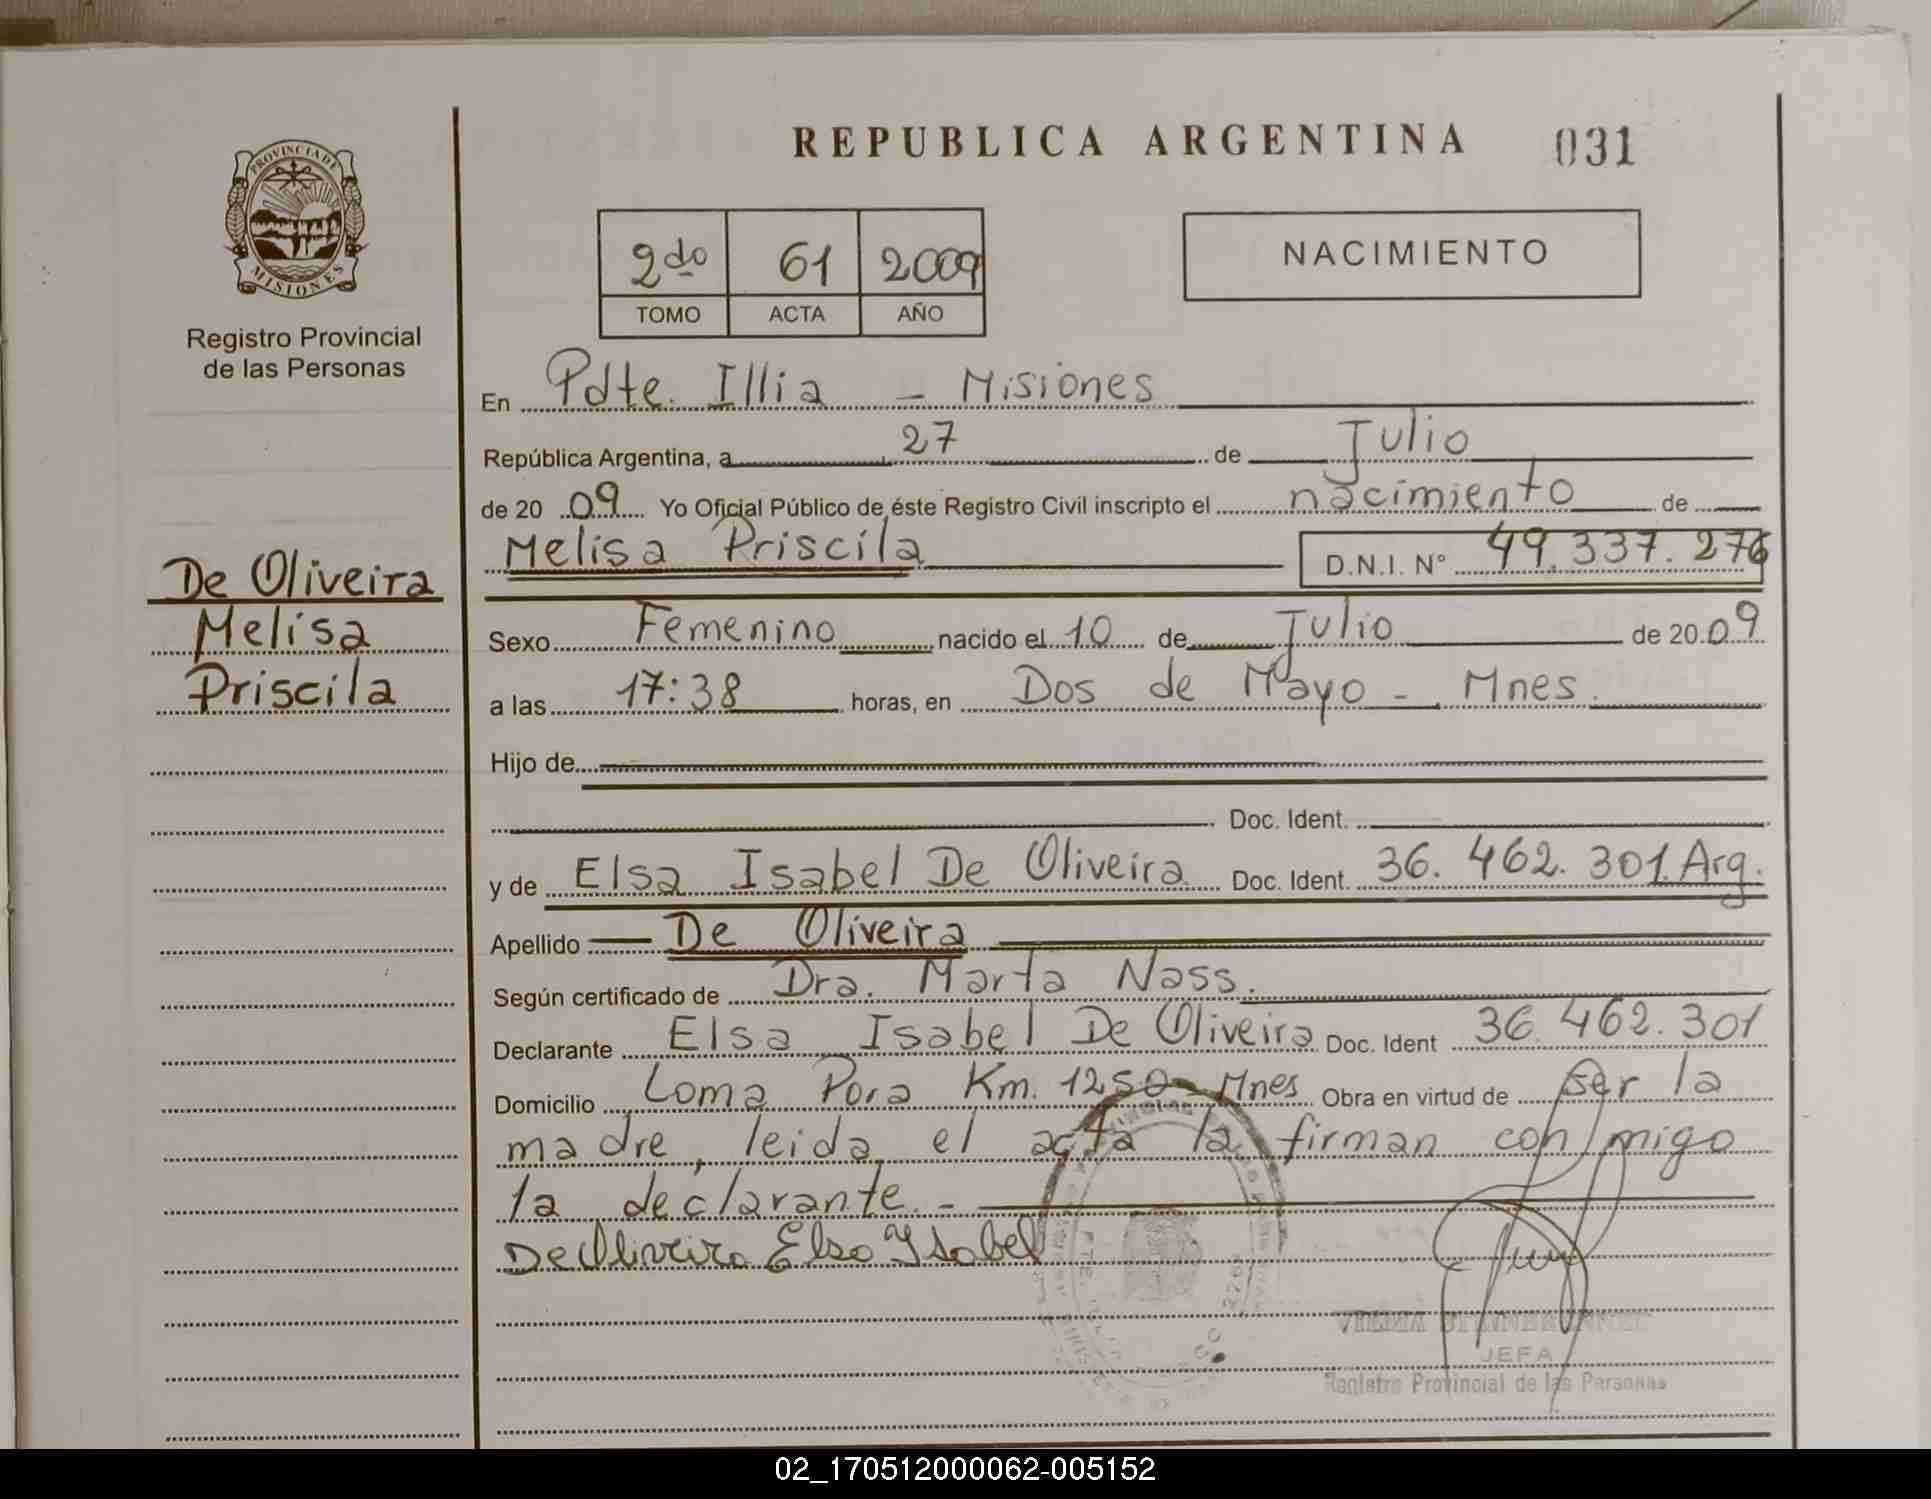 REPUBLICA ARGENTINA 031
PROVINCIA DE
MISIONES
Registro Provincial
de las Personas
2do 61 2009
TOMO ACTA AÑO
NACIMIENTO
En Pdte. Illia - Misiones
República Argentina, a 27 de Julio
de 20 09 Yo Oficial Público de éste Registro Civil inscripto el nacimiento de
Melisa Priscila D.N.I. N° 49.337.276
De Oliveira
Melisa
Priscila
Sexo Femenino nacido el 10 de Julio de 20 09
a las 17:38 horas, en Dos de Mayo - Mnes.
Hijo de
Doc. Ident.
y de Elsa Isabel De Oliveira Doc. Ident. 36.462.301 Arg.
Apellido De Oliveira
Según certificado de Dra. Marta Nass.
Declarante Elsa Isabel De Oliveira Doc. Ident 36.462.301
Domicilio Loma Pora Km. 1250 - Mnes Obra en virtud de ser la
madre, leida el acta la firman con migo
la declarante. -
De Oliveira Elsa Ysabel
JEFA
Registro Provincial de las Personas
02_170512000062-005152